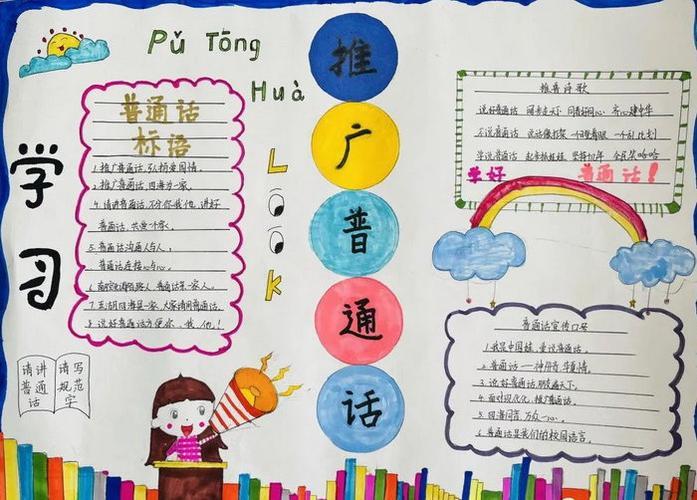 Pǔ Tōng
Huà
学
习
普通话
标语
1.推广普通话,弘扬爱国情。
2.推广普通话,四海为一家。
4.请讲普通话,不分你我他,讲好
普通话,共爱一个家。
5.普通话沟通人与人,
普通话连接心与心。
7.五湖四海是一家,大家请用普通话。
8.说好普通话方便你、我、他!
请讲
普通
话
请写
规范
字
L
K
推
广
普
通
话
推普诗歌
说好普通话 同步走天下 同音好同心 齐心建中华
学说普通话 起步校娃娃 坚持切年 全民笑哈哈
学好
普通话!
普通话宣传口号
1.我是中国娃,爱说普通话。
2.普通话——神州音,华夏情。
3.说好普通话,朋友遍天下。
4.面对现代化,推广普通话。
6.普通话是我们的校园语言。